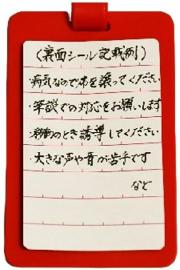 〈裏面シール記載例〉
・病気なので席を譲ってください
・筆談での対応をお願いします
・移動のとき誘導してください
・大きな声や音が苦手です
など